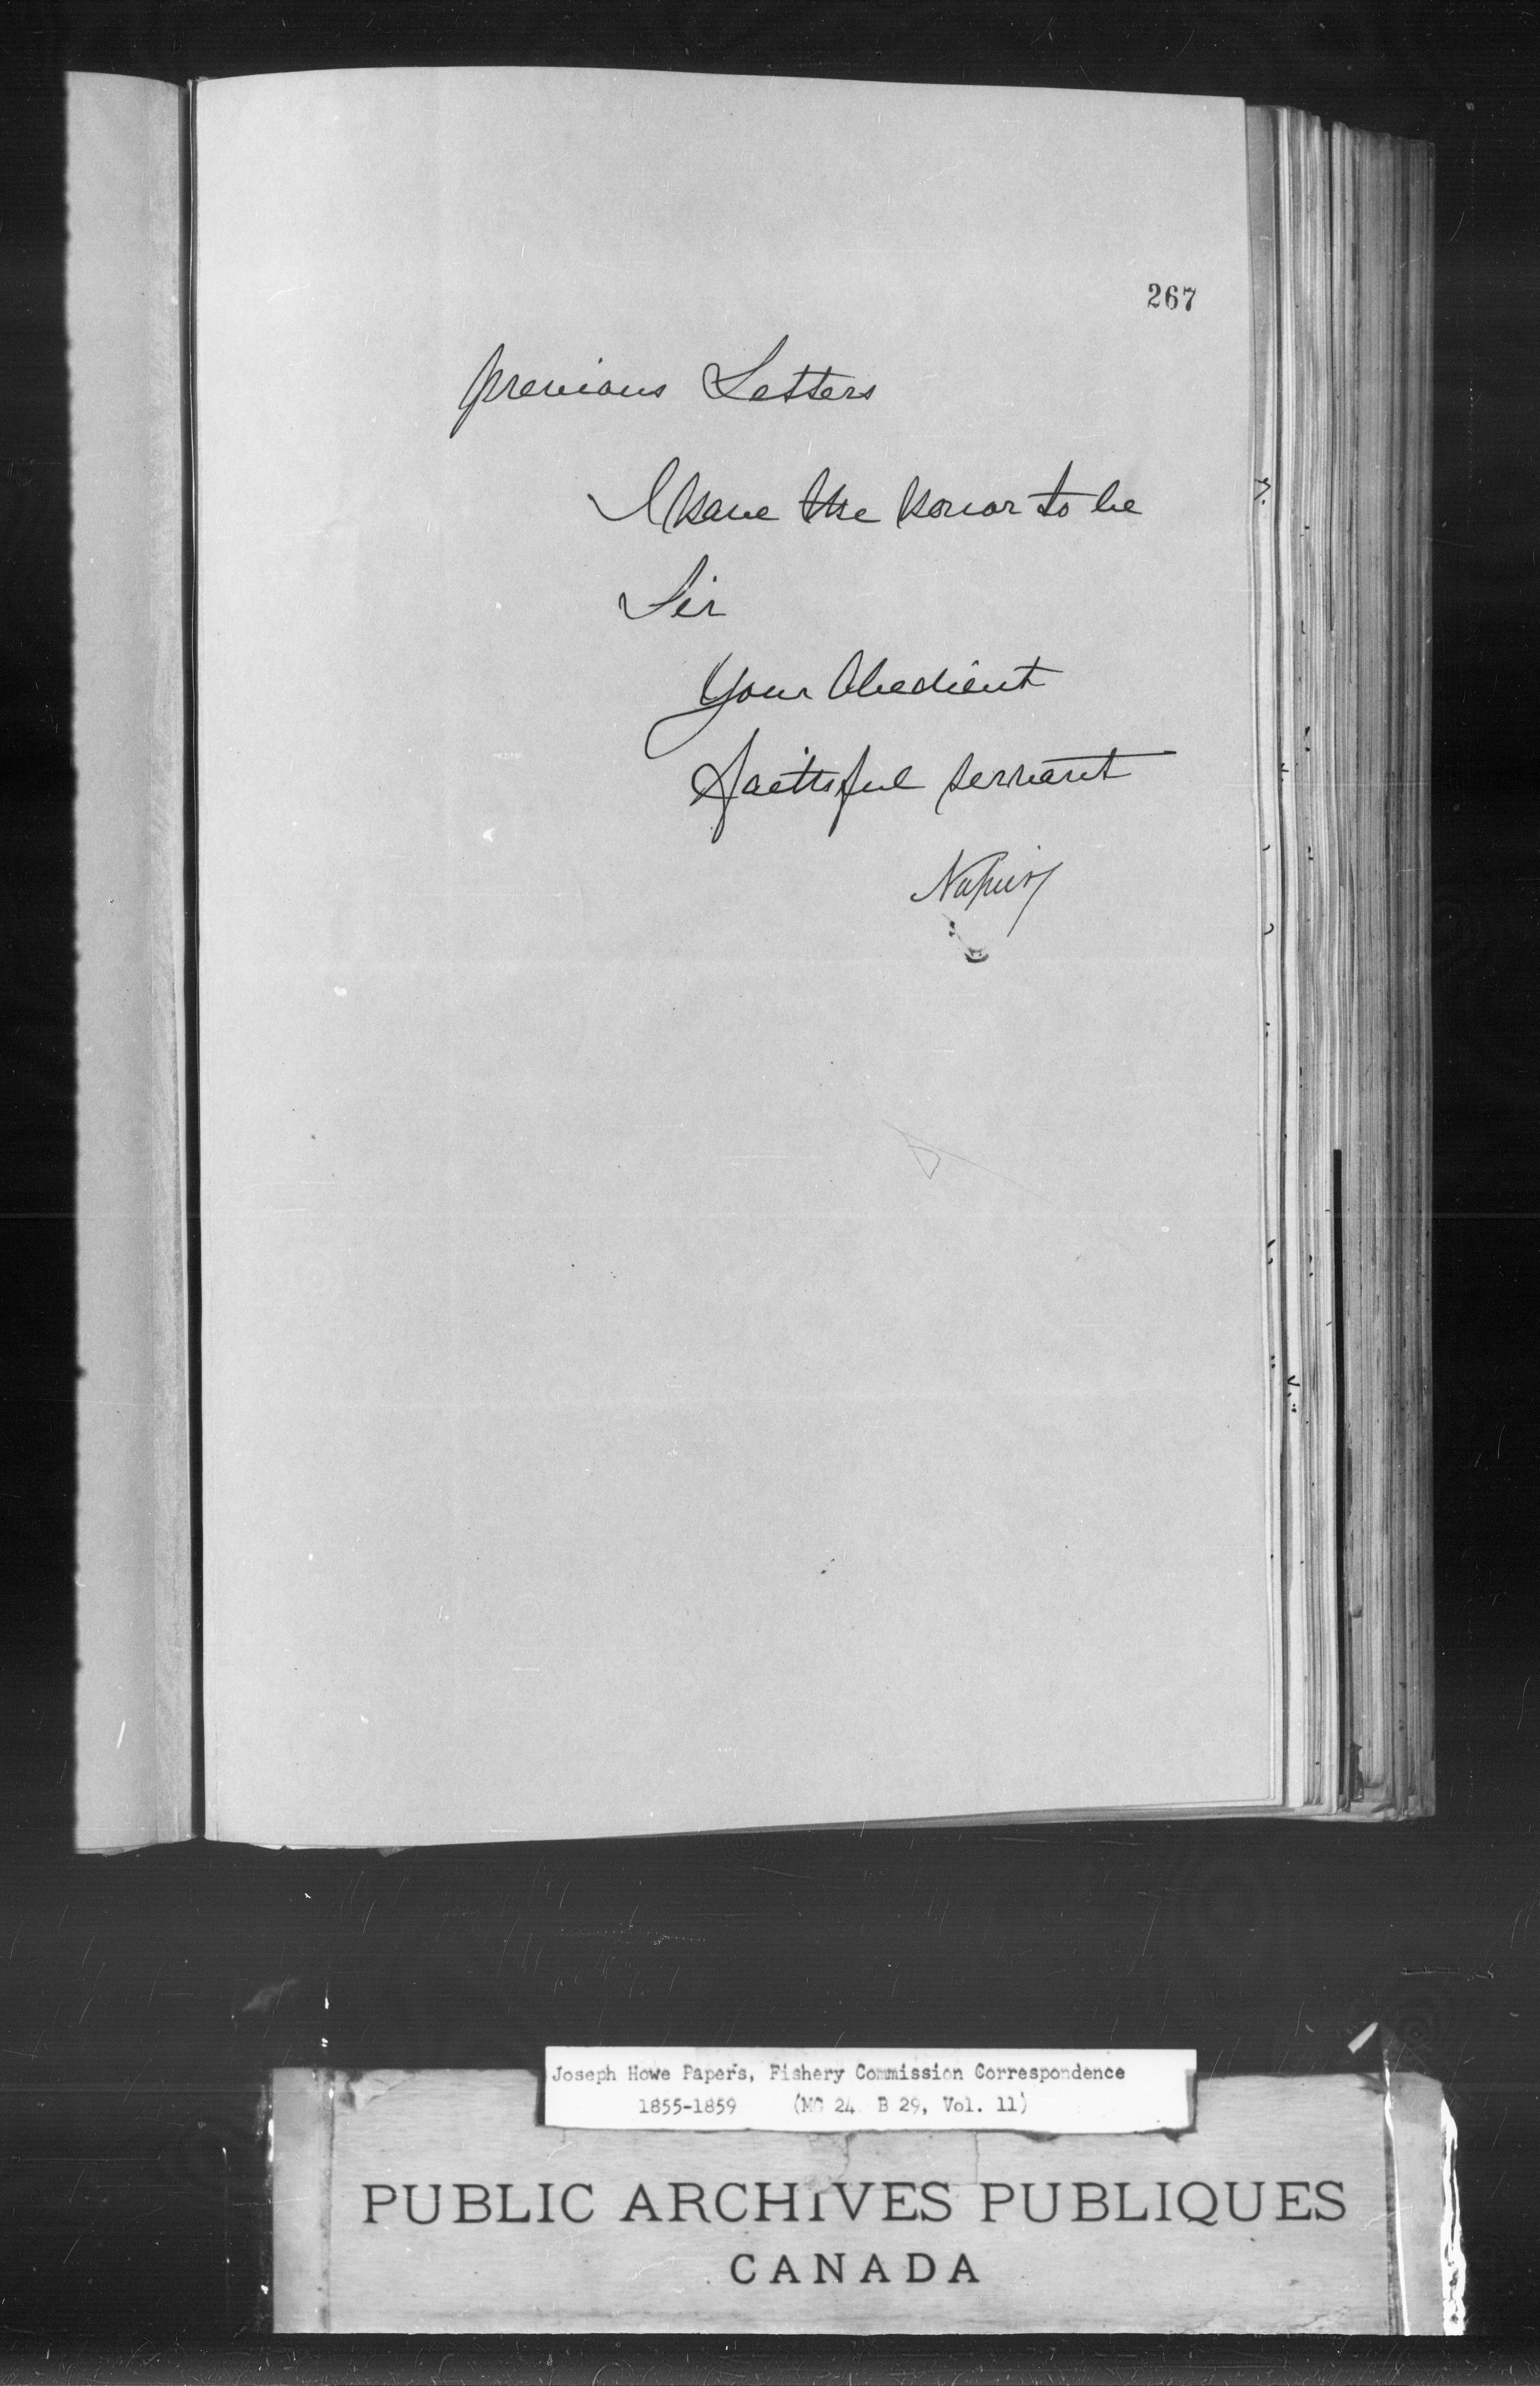 267
previous Letters
I have the honor to be
Sir
Your Obedient
faithful servant
Napier
Joseph Howe Papers, Fishery Commission Correspondence
1855-1859 (MG 24 B 29, Vol. 11)
PUBLIC ARCHIVES PUBLIQUES
CANADA